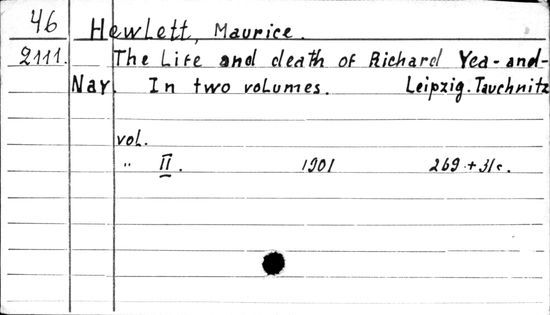 46 Hewlett, Maurice.
2111. The Life and death of Richard Yea-and-
Nay. In two volumes. Leipzig. Tauchnitz
vol.
" II. 1901 269 + 31 c.